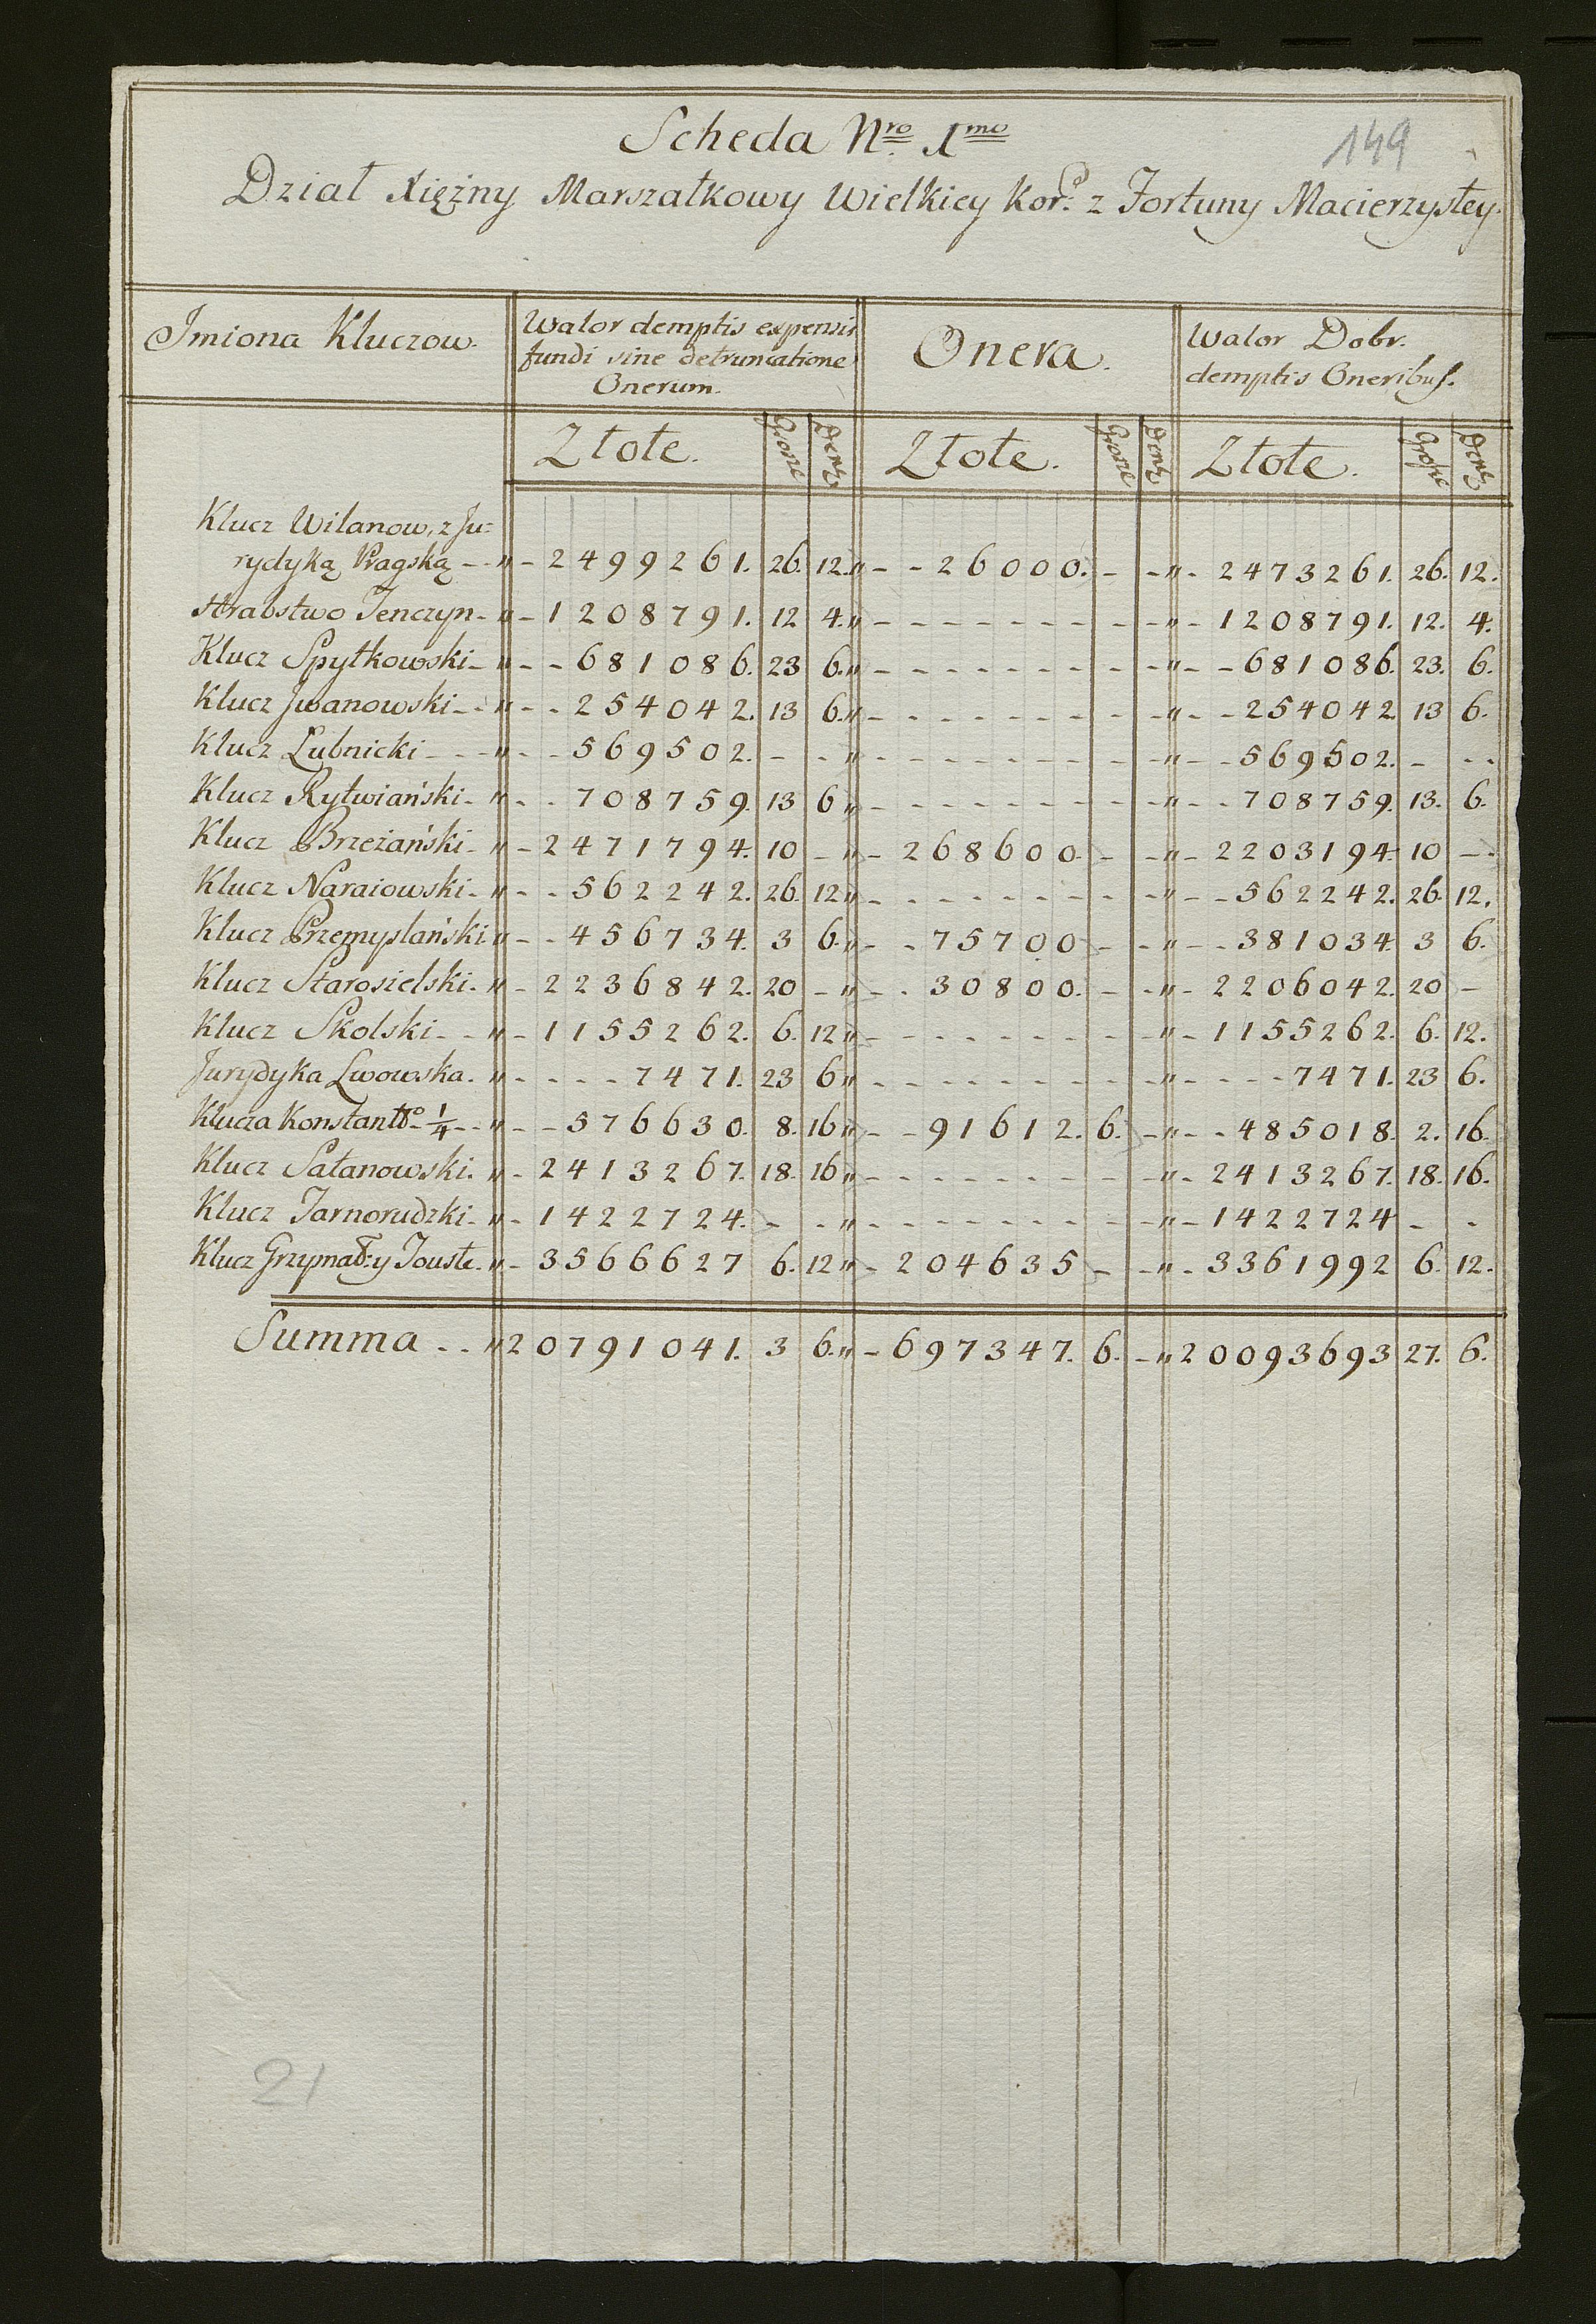 149
Scheda Nro 1mo
Dział Xiężny Marszałkowy Wielkiey Kor: z Fortuny Macierzystey.
Imiona Kluczow. Walor demptis expensis fundi sine detruncatione Onerum. Onera. Walor Dobr. demptis Oneribus.
Złote. Grosze Den: Złote. Grosze Den: Złote. Grosze Den:
Klucz Wilanow. z Ju=
rydyką Pragską - - " - 2499261. 26. 12. " - - 26000. - - " - 2473261. 26. 12.
Hrabstwo Tenczyn - " - 1208791. 12 4. " - - - - - - - - - " - 1208791. 12. 4.
Klucz Spytkowski - " - - 681086. 23 6. " - - - - - - - - - " - - 681086. 23. 6.
Klucz Jwanowski - - " - - 254042. 13 6. " - - - - - - - - - " - - 254042. 13 6.
Klucz Lubnicki - - - " - - 569502. - - " - - - - - - - - - " - - 569502. - - -
Klucz Rytwiański - " - - 708759. 13 6 " - - - - - - - - - " - - 708759. 13. 6.
Klucz Brzeżański - " - 2471794. 10 - " - 268600. - - " - 2203194. 10 - -
Klucz Naraiowski - " - - 562242. 26. 12 " - - - - - - - - - " - - 562242. 26. 12.
Klucz Przemyslański " - - 456734. 3 6. " - - 75700 - - " - - 381034. 3 6.
Klucz Starosielski. " - 2236842. 20 - " - - 30800. - - " - 2206042. 20 -
Klucz Skolski - - " - 1155262. 6. 12 " - - - - - - - - - " - 1155262. 6. 12.
Jurydyka Lwowska. " - - - - 7471. 23 6 " - - - - - - - - - " - - - - 7471. 23 6.
Klucza Konstantto - 1/4 - - " - - 576630. 8. 16 " - - 91612. 6. - " - - 485018. 2. 16.
Klucz Satanowski. " - 2413267. 18. 16 " - - - - - - - - - " - 2413267. 18. 16.
Klucz Tarnorudzki - " - 1422724. - - " - - - - - - - - - " - 1422724 - -
Klucz Grzymał: y Touste. " - 3566627 6. 12 " - 204635 - - " - 3361992 6. 12.
Summa - - " 20791041. 3 6. " - 697347. 6. - " 20093693 27. 6.
21